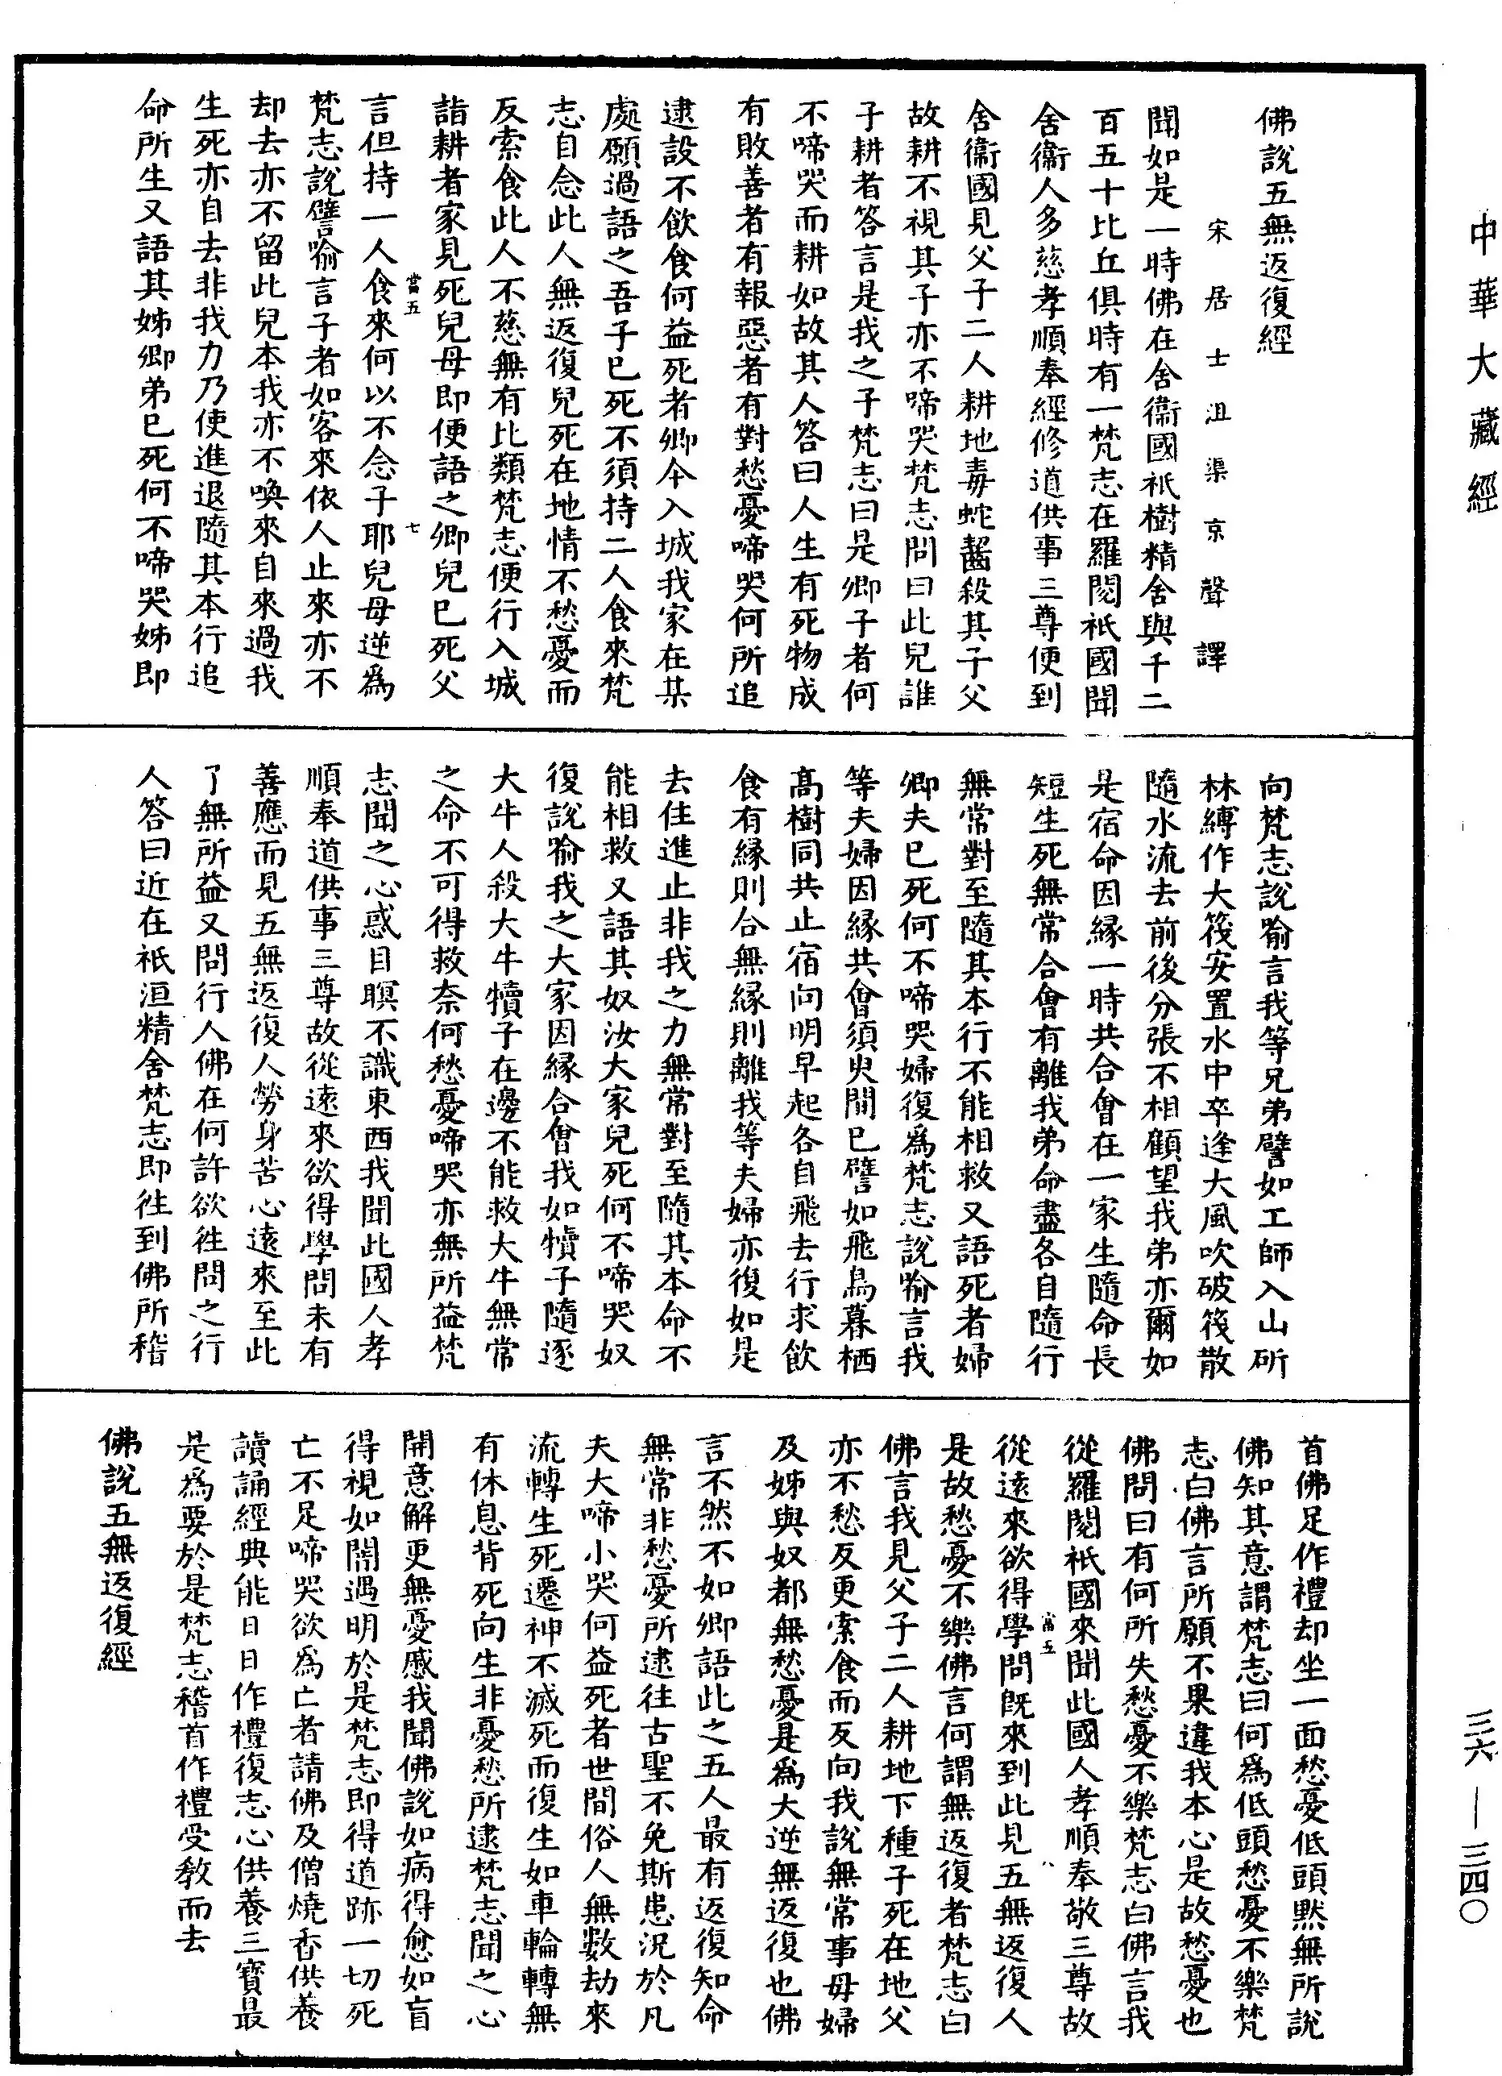 中華大藏經
三六—三四〇
佛說五無返復經
宋居士沮渠京聲譯
聞如是一時佛在舍衞國祇樹精舍與千二
百五十比丘俱時有一梵志在羅閱祇國聞
舍衞人多慈孝順奉經修道供事三尊便到
舍衞國見父子二人耕地毒蛇齧殺其子父
故耕不視其子亦不啼哭梵志問曰此兒誰
子耕者答言是我之子梵志曰是卿子者何
不啼哭而耕如故其人答曰人生有死物成
有敗善者有報惡者有對愁憂啼哭何所追
逮設不飲食何益死者卿今入城我家在某
處願過語之吾子已死不須持二人食來梵
志自念此人無返復兒死在地情不愁憂而
反索食此人不慈無有比類梵志便行入城
詣耕者家見死兒母即便語之卿兒已死父
當五 七
言但持一人食來何以不念子耶兒母逆爲
梵志說譬喻言子者如客來依人止來亦不
却去亦不留此兒本我亦不喚來自來過我
生死亦自去非我力乃使進退隨其本行追
命所生又語其姊卿弟已死何不啼哭姊即
向梵志說喻言我等兄弟譬如工師入山斫
林縛作大筏安置水中卒逢大風吹破筏散
隨水流去前後分張不相顧望我弟亦爾如
是宿命因緣一時共合會在一家生隨命長
短生死無常合會有離我弟命盡各自隨行
無常對至隨其本行不能相救又語死者婦
卿夫已死何不啼哭婦復爲梵志說喻言我
等夫婦因緣共會須臾間已譬如飛鳥暮栖
高樹同共止宿向明早起各自飛去行求飲
食有緣則合無緣則離我等夫婦亦復如是
去住進止非我之力無常對至隨其本命不
能相救又語其奴汝大家兒死何不啼哭奴
復說喻我之大家因緣合會我如犢子隨逐
大牛人殺大牛犢子在邊不能救大牛無常
之命不可得救奈何愁憂啼哭亦無所益梵
志聞之心惑目瞑不識東西我聞此國人孝
順奉道供事三尊故從遠來欲得學問未有
善應而見五無返復人勞身苦心遠來至此
了無所益又問行人佛在何許欲往問之行
人答曰近在祇洹精舍梵志即往到佛所稽
首佛足作禮却坐一面愁憂低頭默無所說
佛知其意謂梵志曰何爲低頭愁憂不樂梵
志白佛言所願不果違我本心是故愁憂也
佛問曰有何所失愁憂不樂梵志白佛言我
從羅閱祇國來聞此國人孝順奉敬三尊故
當五 八
從遠來欲得學問既來到此見五無返復人
是故愁憂不樂佛言何謂無返復者梵志白
佛言我見父子二人耕地下種子死在地父
亦不愁反更索食而反向我說無常事母婦
及姊與奴都無愁憂是爲大逆無返復也佛
言不然不如卿語此之五人最有返復知命
無常非愁憂所逮往古聖不免斯患況於凡
夫大啼小哭何益死者世間俗人無數劫來
流轉生死遷神不滅死而復生如車輪轉無
有休息背死向生非憂愁所逮梵志聞之心
開意解更無憂慼我聞佛說如病得愈如盲
得視如闇遇明於是梵志即得道跡一切死
亡不足啼哭欲爲亡者請佛及僧燒香供養
讀誦經典能日日作禮復志心供養三寶最
是爲要於是梵志稽首作禮受教而去
佛說五無返復經